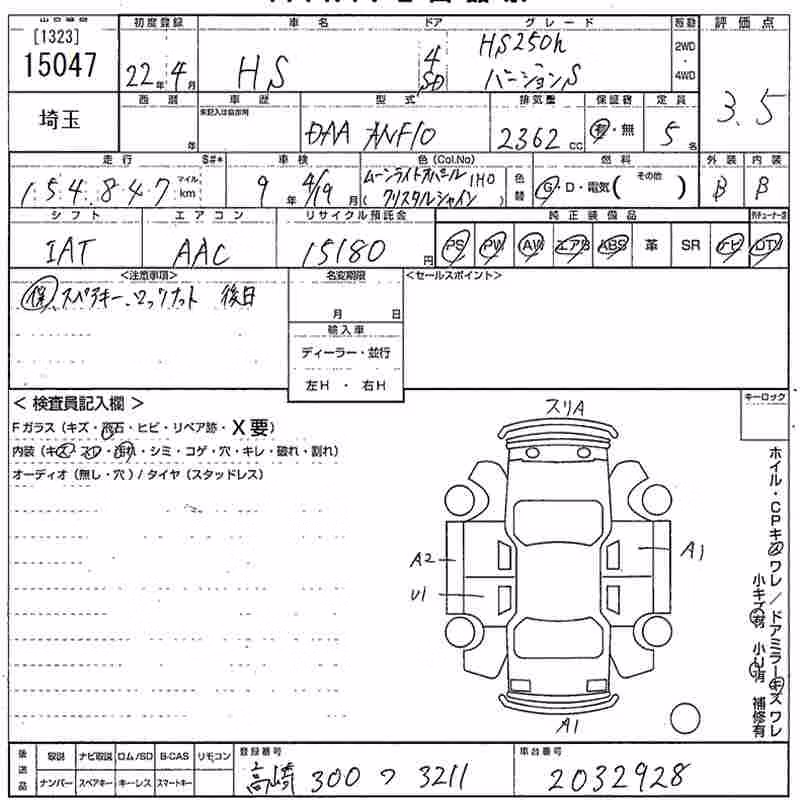 [1323]
15047
埼玉
初度登録 車名 ドア グレード 駆動 評価点
22年4月 HS 4 SD HS250h バージョンS 2WD・4WD 3.5
西暦 年 車歴 未記入は自家用 型式 排気量 保証書 定員
DAA ANF10 2362cc 有・無 5名
走行 S#* 車検 色(Col.No) 色替 燃料 外装 内装
154847 マイル km 9年4/19月 ムーンライトオパール クリスタルシャイン (1H0) G・D・電気( その他 ) B B
シフト エアコン リサイクル預託金 純正装備品
IAT AAC 15180円 PS PW AW エアB ABS 革 SR ナビ DTV
<注意事項> 名変期限 <セールスポイント>
保 スペアキー、ロックナット 後日
月 日
輸入車
ディーラー・並行
左H・右H
<検査員記入欄> キーロック
Fガラス(キズ・飛石・ヒビ・リペア跡・X要)
内装(キズ・スレ・汚れ・シミ・コゲ・穴・キレ・破れ・割れ)
オーディオ(無し・穴)/タイヤ(スタッドレス)
スリA
A2
U1
A1
A1
ホイル・CPキズ ワレ/ドアミラーキズ ワレ
小キズ有 小U有 補修有
後送品 取説 ナビ取説 ロム/SD B-CAS リモコン 登録番号 車台番号
ナンバー スペアキー キーレス スマートキー 高崎 300 つ 3211 2032928